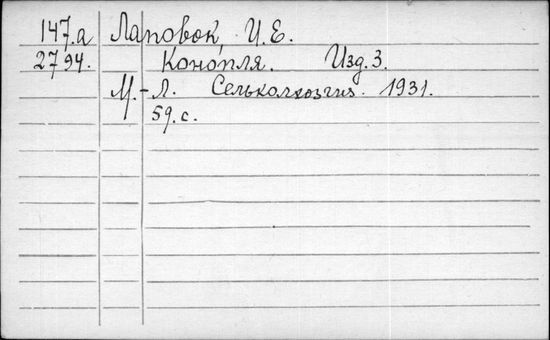 147.а Лаповок И.Е.
2794. Конопля. Изд. 3.
М.-Л. Сельколхозгиз. 1931.
59. с.